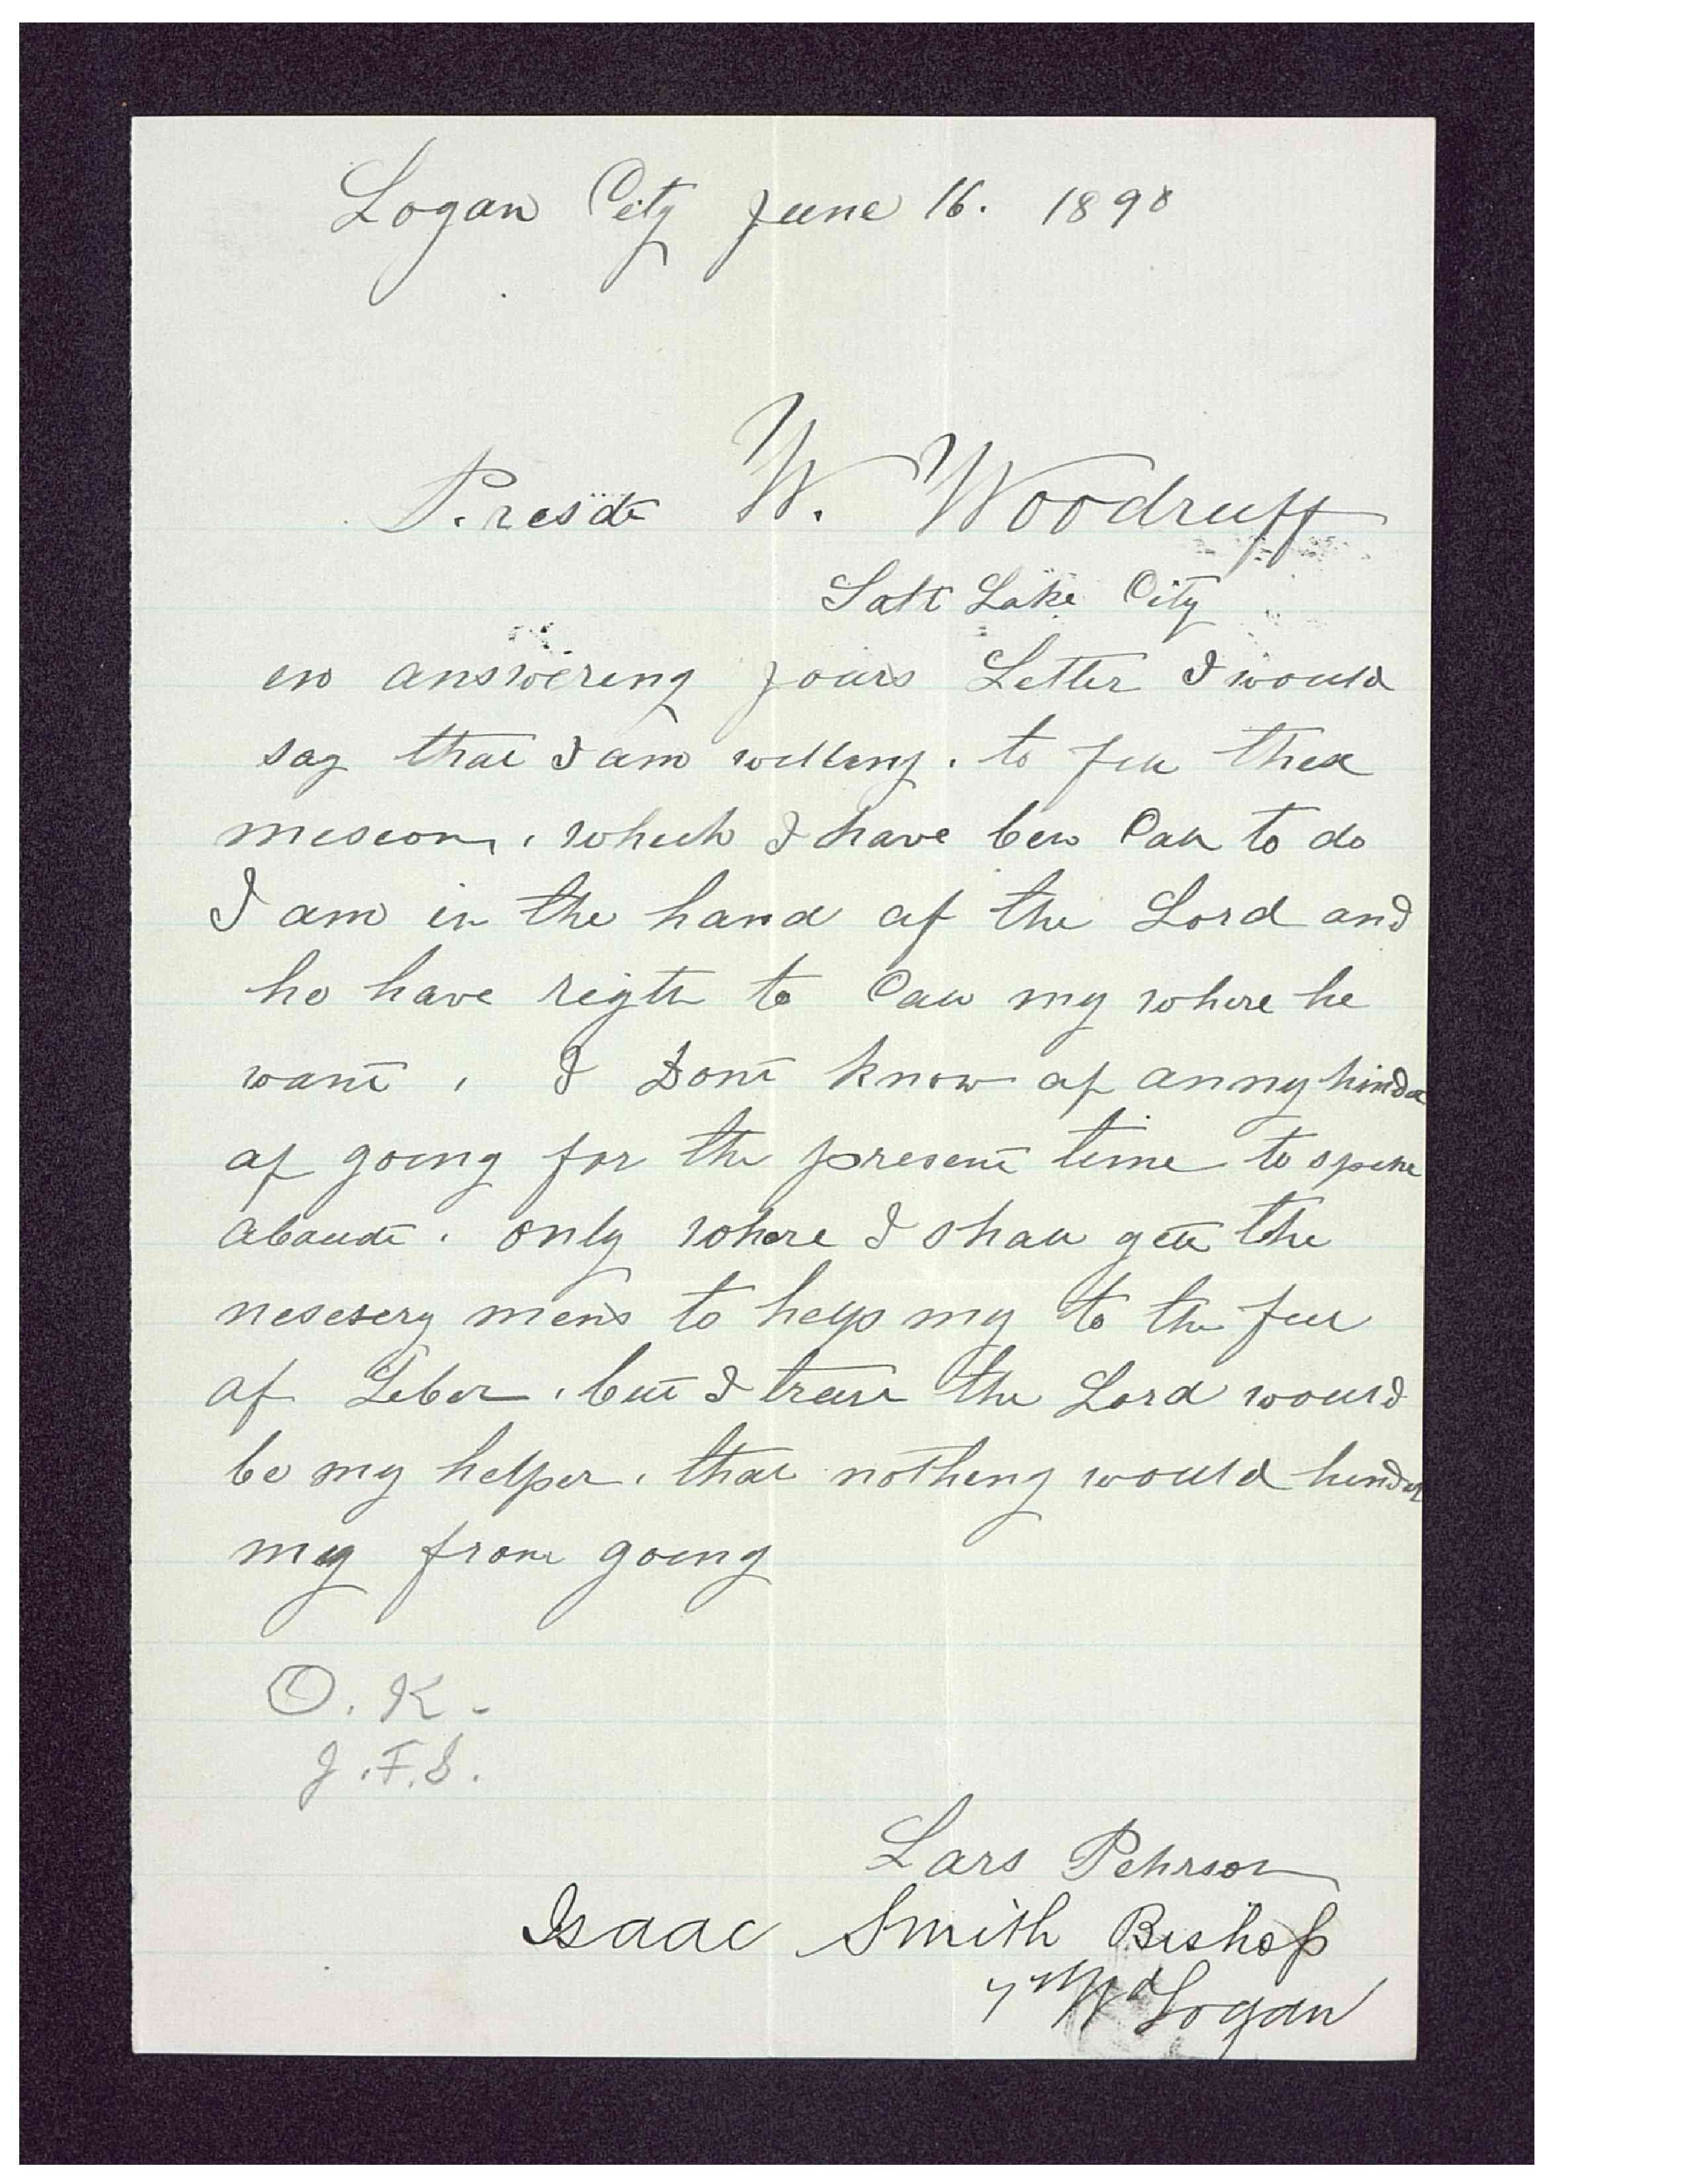 Logan City June 16. 1898
Presdt W. Woodruff
Salt Lake City
en answering yours Letter I would
say that I am willeng. to full thes
mescon, which I have ben Call to do
I am in the hand af the Lord and
he have rigth to Call my where he
want, I Dont know af anny hinder
af going for the present time to speke
aboudt. only where I shall gett the
nesesery mens to help my to the feel
af Leber. but I trust the Lord would
be my helper. that nothing would hender
my from going
O. K.
J. F. S.
Lars Pehrson
Isaac Smith Bishop
7th Wd Logan